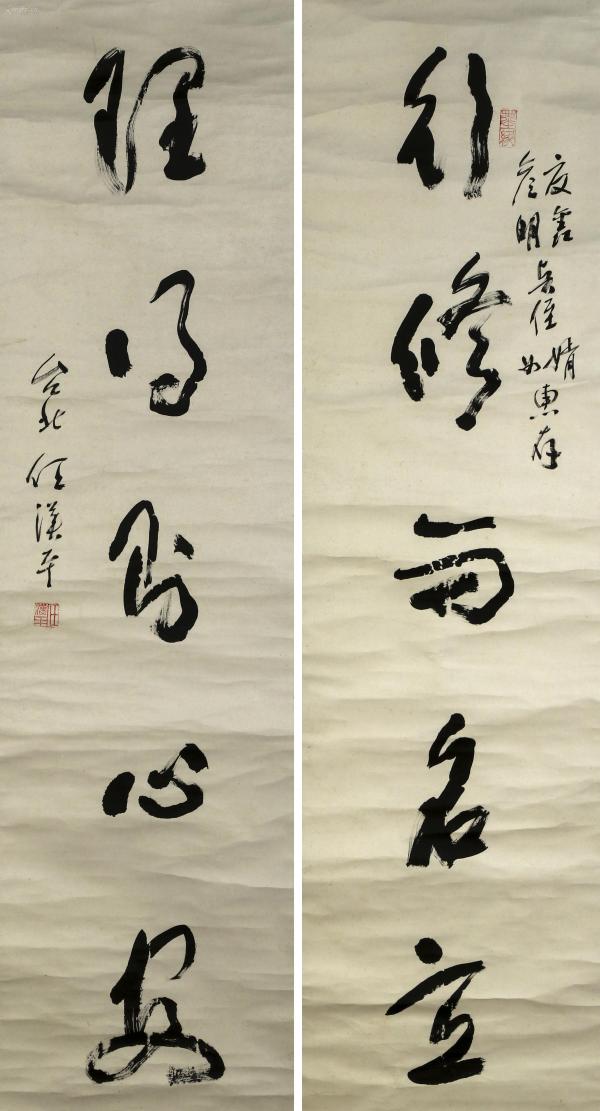 行修而名立
明
惠存
理得則心安
台北任漢平